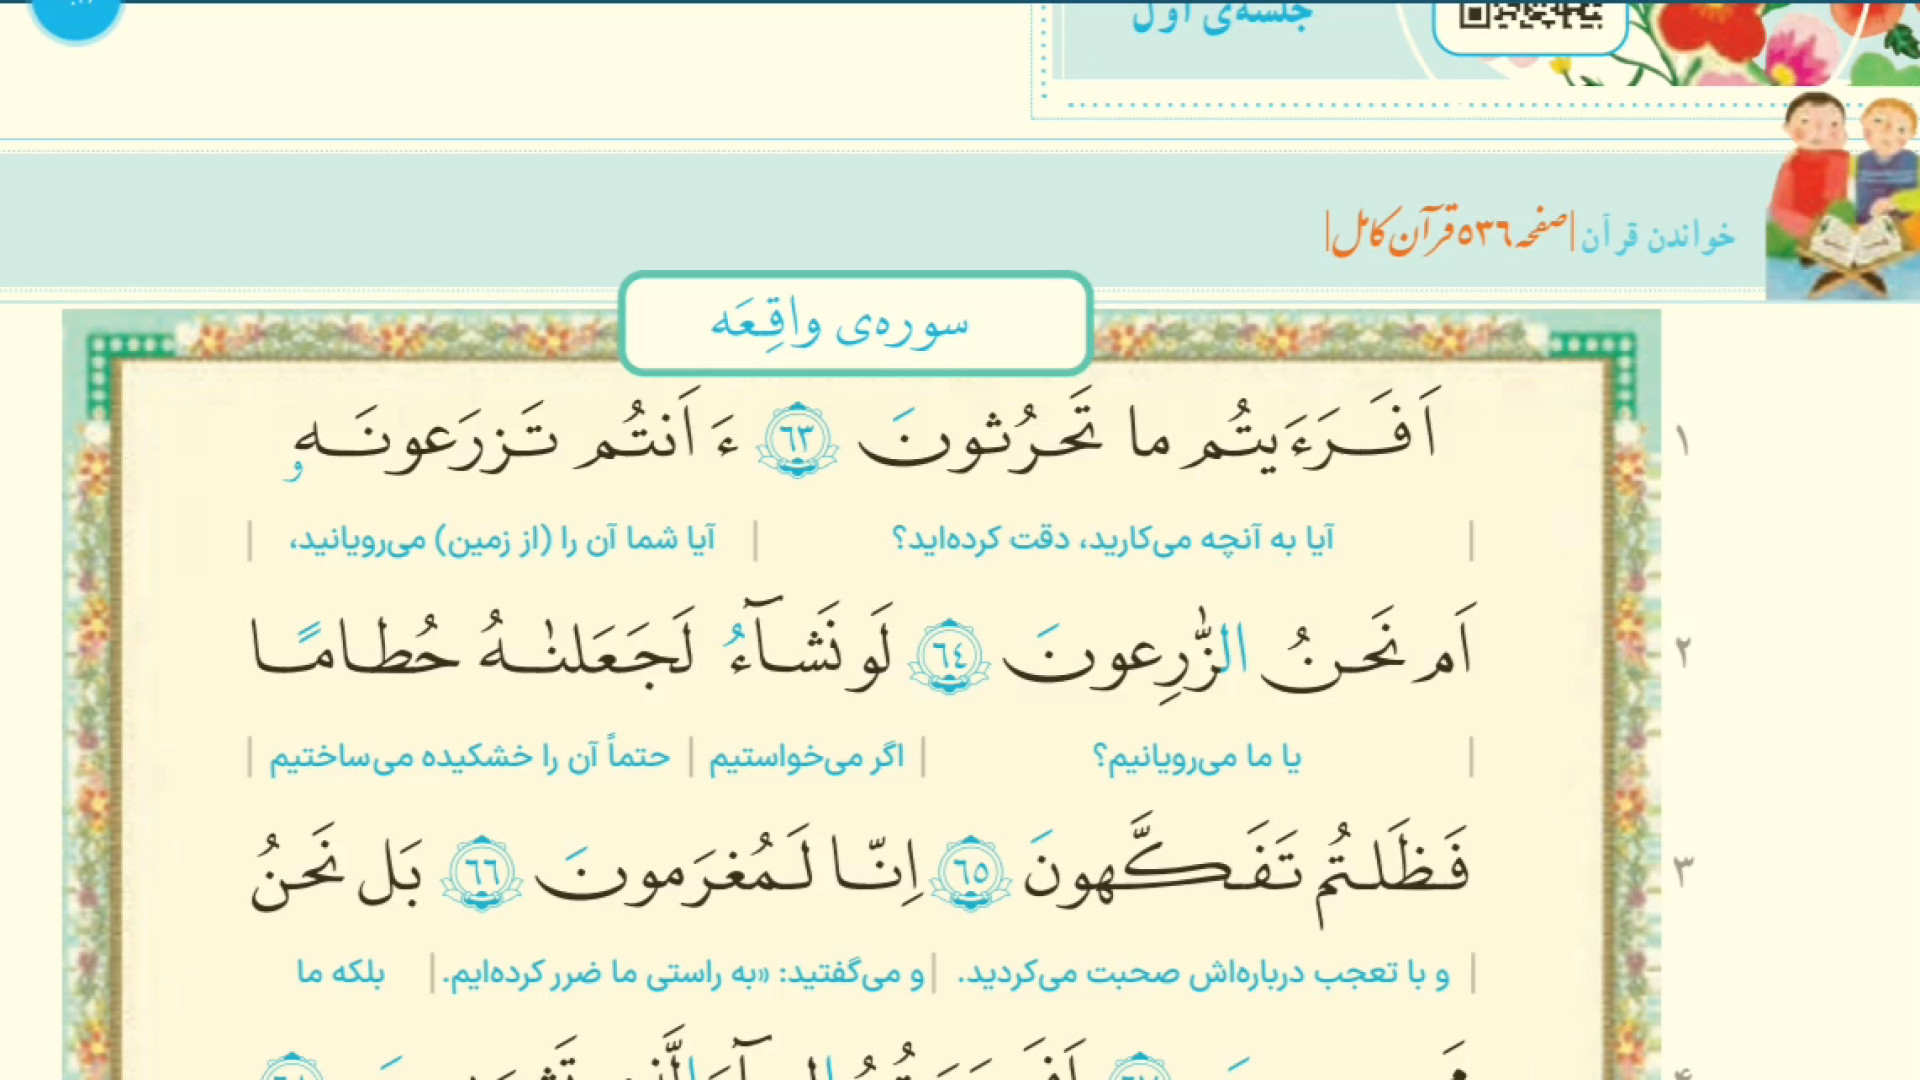 جلسه‌ی اول
خواندن قرآن |صفحه ۵۳۶ قرآن کامل|
سوره‌ی واقِعَه
۱
اَفَـرَءَيتُم ما تَحرُثونَ ٦٣ ءَ اَنتُم تَـزرَعونَـه و
آیا به آنچه می‌کارید، دقت کرده‌اید؟ | آیا شما آن را (از زمین) می‌رویانید،
۲
اَم نَحـنُ الزّٰرِعونَ ٦٤ لَو نَشـآءُ لَجَـعَلنٰـهُ حُطامًـا
یا ما می‌رویانیم؟ | اگر می‌خواستیم | حتماً آن را خشکیده می‌ساختیم
۳
فَـظَـلـتُم تَـفَـكَّـهونَ ٦٥ اِنّـا لَـمُغرَمونَ ٦٦ بَل نَحنُ
و با تعجب درباره‌اش صحبت می‌کردید. | و می‌گفتید: «به راستی ما ضرر کرده‌ایم. | بلکه ما